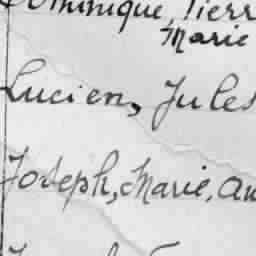 Dominique, Pierr
Marie
Lucien, Jules
Joseph, Marie, Au